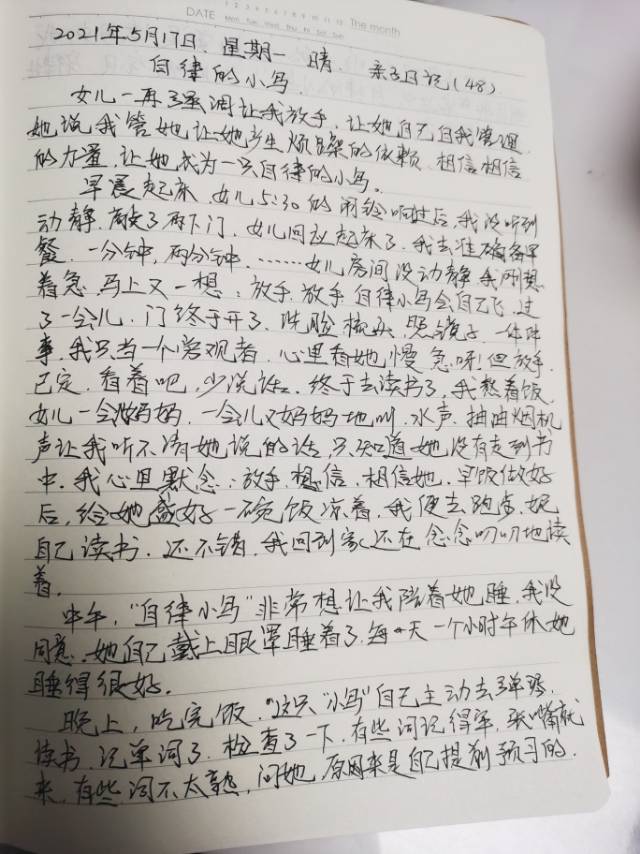 DATE
Mon Tue Wed Thu Fri Sat Sun
The month
2021年5月17日 星期一 晴. 亲子日记(48)
自律的小鸟.
女儿一再强调让我放手,让她自己自我管理,
她说我管她,让她产生烦躁的依赖,相信相信
的力量,让她成为一只自律的小鸟。
早晨起来,女儿5:30的闹铃响过后,我没听到
动静,敲了两下门,女儿回应起来了,我去准备早
餐,一分钟,两分钟,……女儿房间没动静,我刚想
着急,马上又一想:放手,放手,自律小鸟会自己飞,过
了一会儿,门终于开了,洗脸梳头,照镜子,一件件
事,我只当一个旁观者,心里看她慢,急呀!但放手
已定,看着吧,少说话。终于去读书了,我熬着饭,
女儿一会妈妈,一会儿又妈妈地叫,水声,抽油烟机
声让我听不清她说的话,只知道她没有走到书
中,我心里默念:放手,想信,相信她,早饭做好
后,给她盛好一碗饭凉着,我便去跑步,妮
自己读书,还不错,我回到家还在念念叨叨地读
着。
中午,“自律小鸟”非常想让我陪着她睡,我没
同意,她自己戴上眼罩睡着了,每一天一个小时午休她
睡得很好。
晚上,吃完饭,“这只“小鸟”自己主动去弹琴,
读书,记单词了,检查了一下,有些词记得牢,张嘴就
来,有些词不太熟,问她,原来是自己提前预习的.